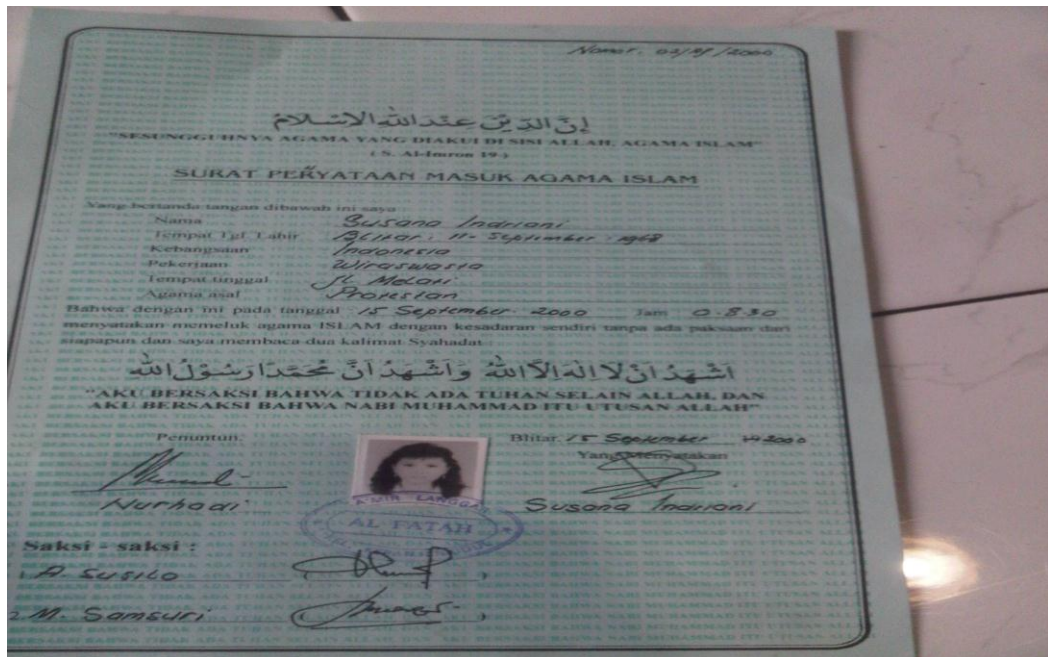 Nomor. 02/IX/2000
إِنَّ الدِّيْنَ عِنْدَ اللّٰهِ الْاِسْلَامُ
"SESUNGGUHNYA AGAMA YANG DIAKUI DI SISI ALLAH, AGAMA ISLAM"
( S. Al-Imron 19 )
SURAT PERYATAAN MASUK AGAMA ISLAM
Yang bertanda tangan dibawah ini saya
Nama Susana Indriani
Tempat Tgl. Lahir Blitar. 11 - September. 1968
Kebangsaan Indonesia
Pekerjaan Wiraswasta
Tempat tinggal JL Melati
Agama asal Protestan
Bahwa dengan ini pada tanggal 15 September. 2000 Jam 0.8.30
menyatakan memeluk agama ISLAM dengan kesadaran sendiri tanpa ada paksaan dari
siapapun dan saya membaca dua kalimat Syahadat
اَشْهَدُ اَنْ لَا اِلٰهَ اِلَّا اللّٰهُ وَاَشْهَدُ اَنَّ مُحَمَّدًا رَسُوْلُ اللّٰهِ
"AKU BERSAKSI BAHWA TIDAK ADA TUHAN SELAIN ALLAH, DAN
AKU BERSAKSI BAHWA NABI MUHAMMAD ITU UTUSAN ALLAH"
Penuntun, Blitar, 15 September 2000
Yang Menyatakan
Nurhadi Susana Indriani
LANGGAR
AL FATAH
Saksi - saksi :
A. Susilo
2 M. Samsuri